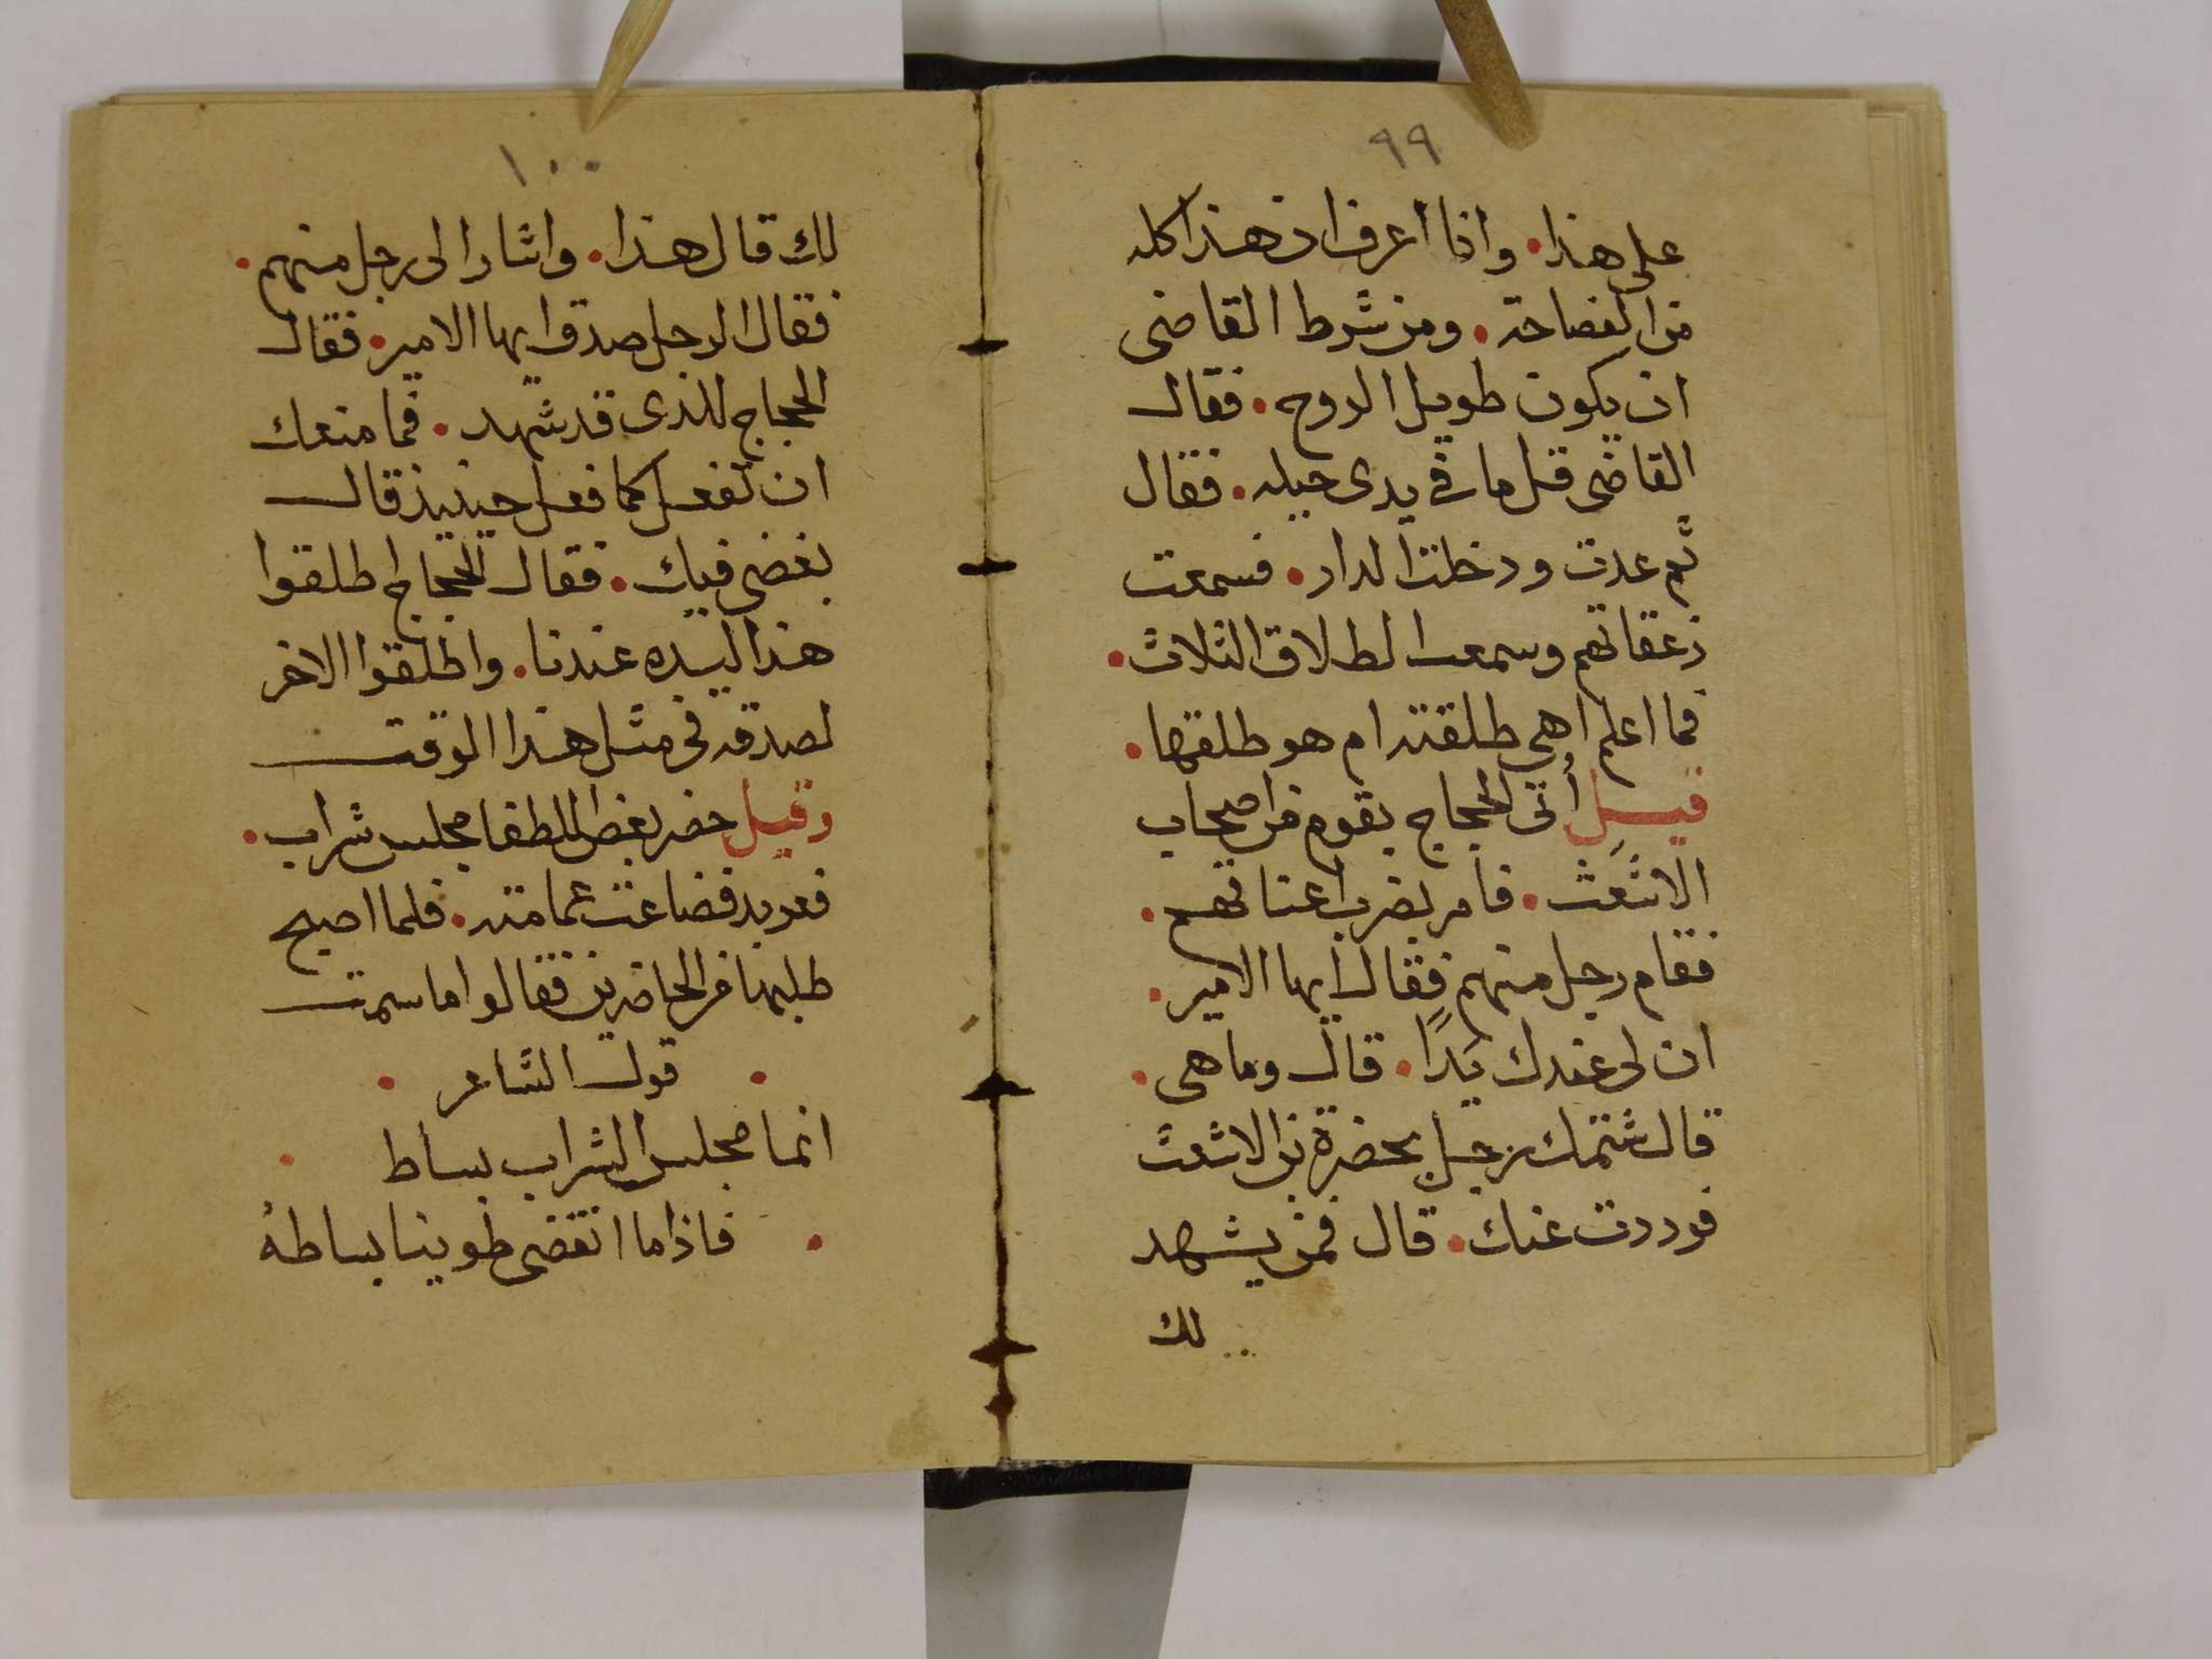 ٩٩
على هذا. وانا اعرف ان هذا كله
من الفصاحة. ومن شرط القاضى
ان يكون طويل الروح. فقال
القاضى قل ما فى يدى حيله. فقال
ثم عدت ودخلت الدار. فسمعت
زعقاتهم وسمعت الطلاق الثلاث.
فما اعلم اهى طلقته ام هو طلقها.
قيل أتى الحجاج بقوم من اصحاب
الاشعث. فامر بضرب اعناقهم.
فقام رجل منهم فقال ايها الامير.
ان لى عندك يدًا. قال وما هى.
قال شتمك رجل بحضرة بن الاشعث
فرددت عنك. قال فمن يشهد
لك
١٠٠
لك قال هذا. واشار الى رجل منهم.
فقال الرجل صدق ايها الامير. فقال
الحجاج للذى قد شهد. فما منعك
ان تفعل كما فعل حينيذ قال
بغضى فيك. فقال الحجاج اطلقوا
هذا ليده عندنا. واطلقوا الاخر
لصدقه فى مثل هذا الوقت
وقيل حضر بعض اللطفا مجلس شراب.
فعربد فضاعت عمامته. فلما اصبح
طلبها من الحاضرين فقالوا ما سمعت
. قول الشاعر .
انما مجلس الشراب بساط .
. فاذا ما انقضى طوينا بساطهُ